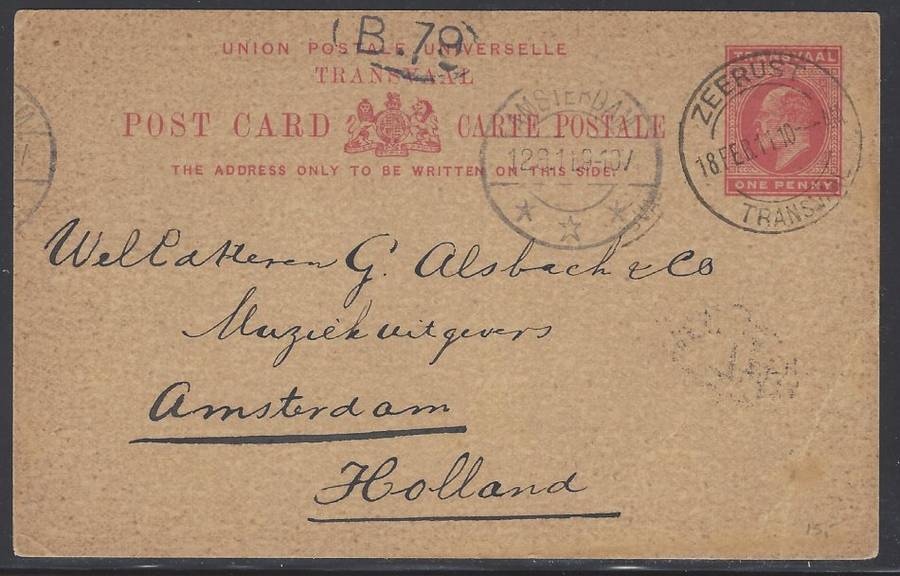 (B.79)
UNION POSTALE UNIVERSELLE
TRANSVAAL
POST CARD CARTE POSTALE
THE ADDRESS ONLY TO BE WRITTEN ON THIS SIDE.
TRANSVAAL
ONE PENNY
ZEERUST
18.FEB.11.10
TRANSVAAL
AMSTERDAM
WelEd Heeren G. Alsbach & Co
Muziekuitgevers
Amsterdam
Holland
15,-